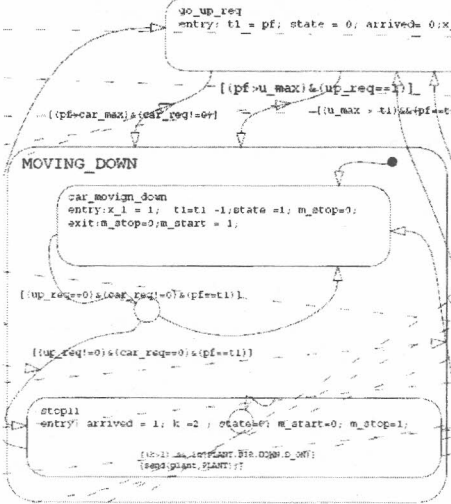 go_up_req
entry: t1 = pf; state = 0; arrived= 0;x_
[(pf>u_max)&(up_req==1)]
[(pf>car_max)&(car_req!=0)]
[(u_max > t1)&&(pf==t
MOVING_DOWN
car_movign_down
entry:x_1 = 1; t1=t1 -1;state =1; m_stop=0;
exit:m_stop=0;m_start = 1;
[(up_req==0)&(car_req!=0)&(pf==t1)]
[(up_req!=0)&(car_req==0)&(pf==t1)]
stop11
entry: arrived = 1; k =2 ; state=0; m_start=0; m_stop=1;
(PLANT.DIR.DOWN.D_ON)]
{send(plant,PLANT);}